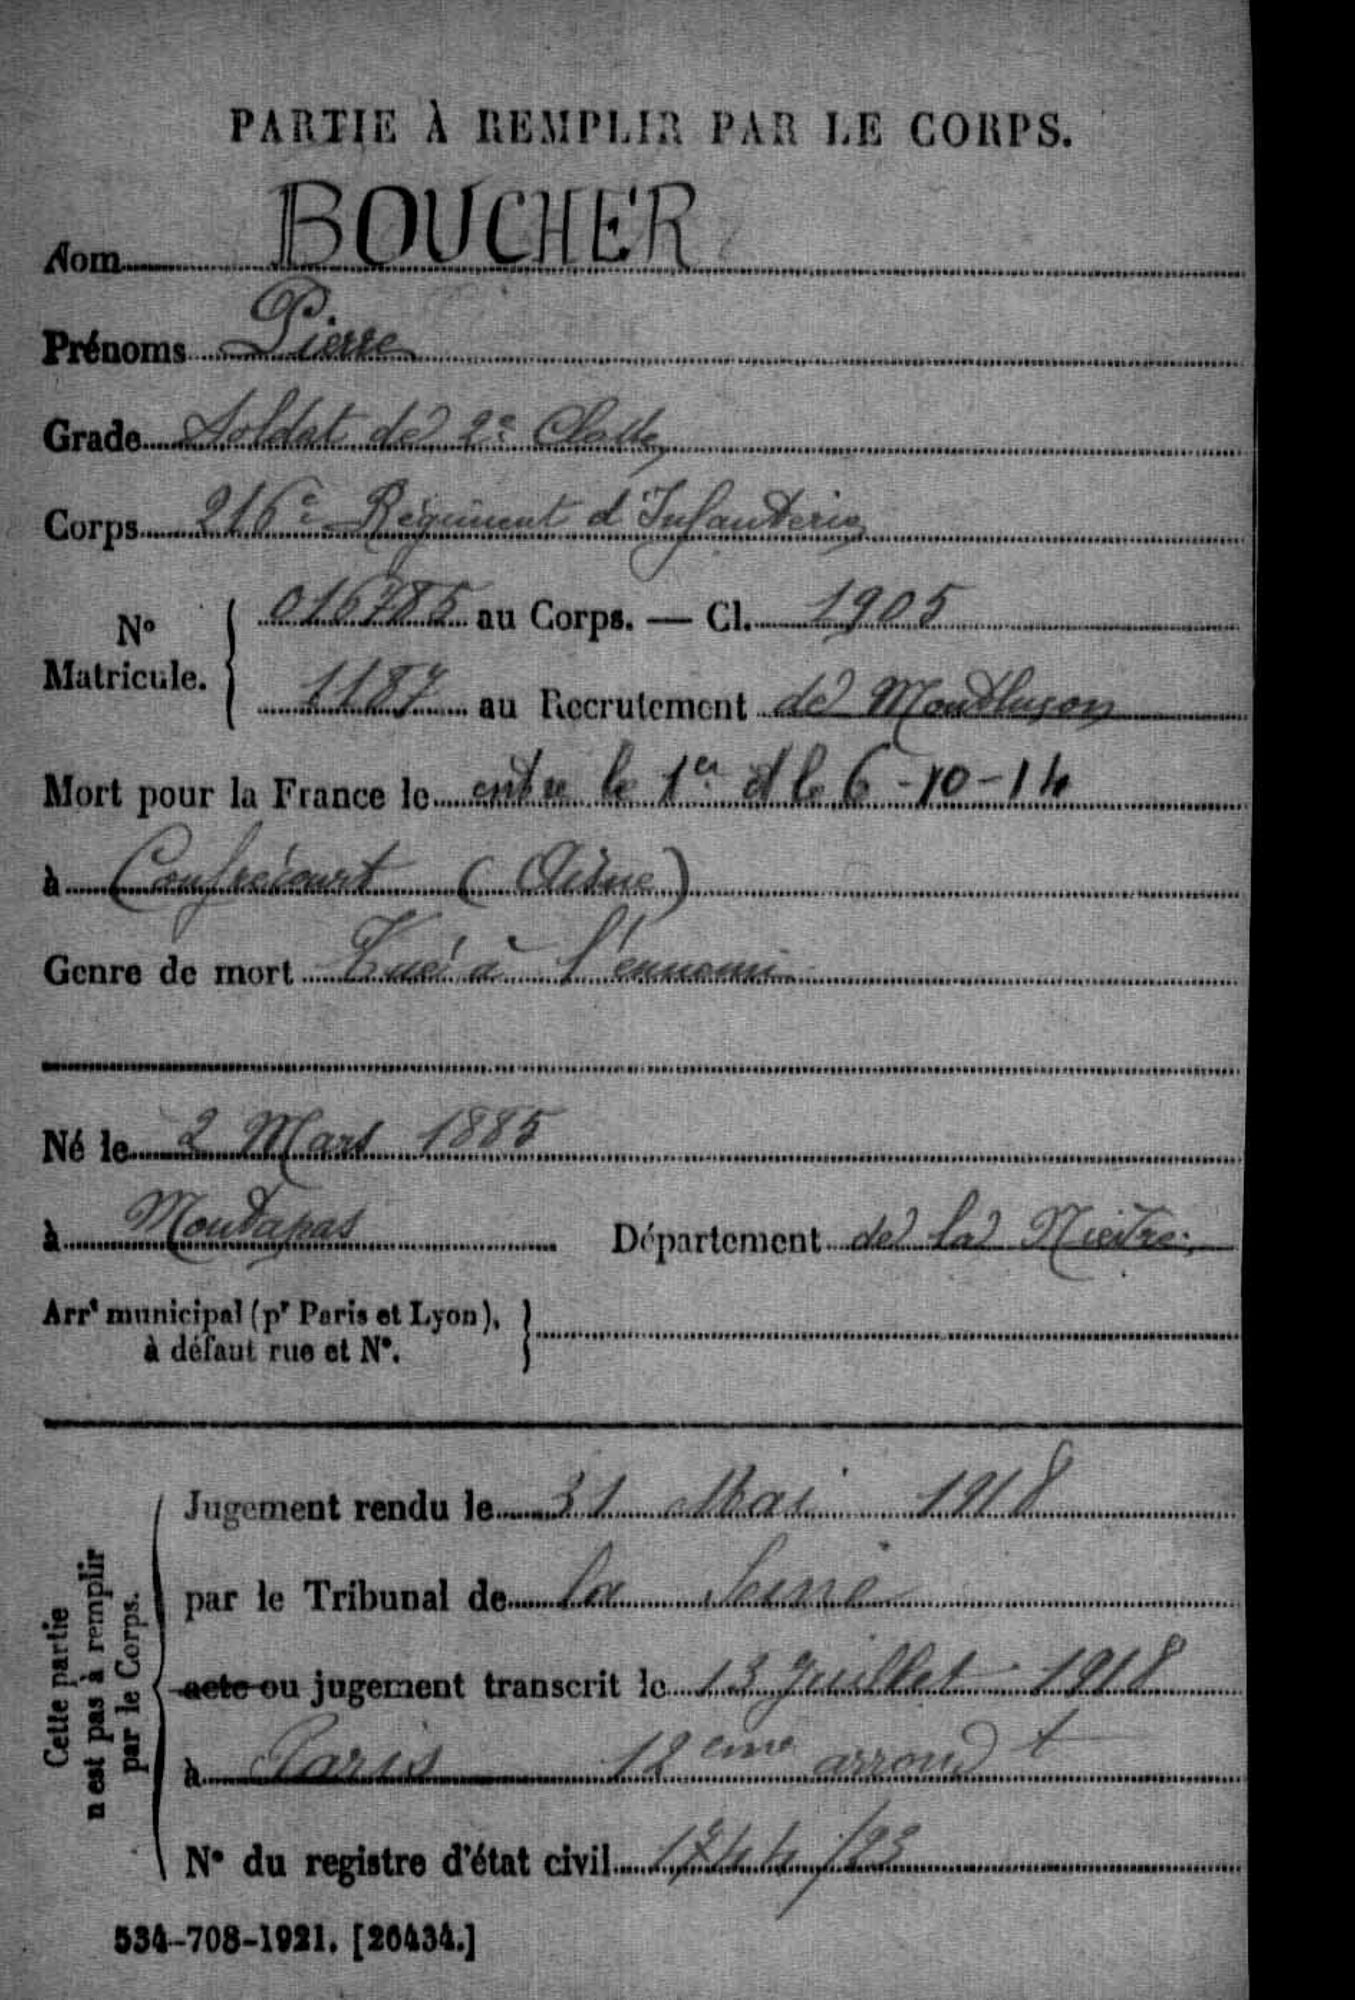 PARTIE À REMPLIR PAR LE CORPS.
Nom BOUCHER
Prénoms Pierre
Grade Soldat de 2e Classe
Corps 216e Régiment d'Infanterie
No Matricule. 016785 au Corps. — Cl. 1905
1187 au Recrutement de Montluçon
Mort pour la France le entre le 1er et le 6-10-14
à Confrécourt (Aisne)
Genre de mort Tué à l'ennemi
Né le 2 Mars 1885
à Montapas Département de la Nièvre
Arrt municipal (pr Paris et Lyon),
à défaut rue et No.
Cette partie
n'est pas à remplir
par le Corps.
Jugement rendu le 31 Mai 1918
par le Tribunal de la Seine
acte ou jugement transcrit le 13 Juillet 1918
à Paris 12eme arrondt
No du registre d'état civil 1744/23
534-708-1921. [26434.]